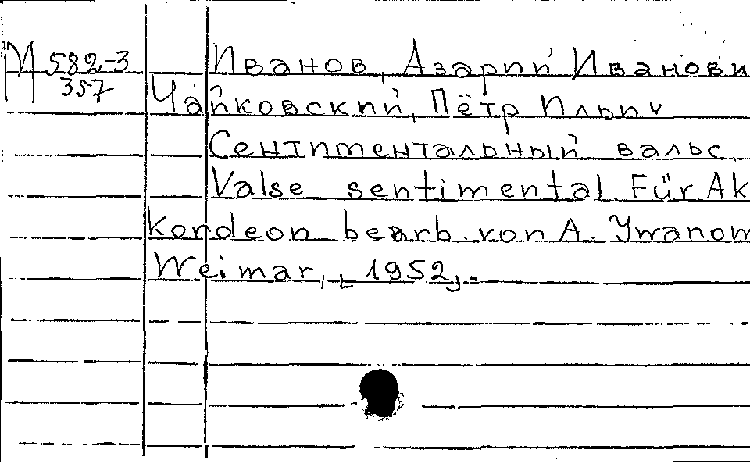 М 582-3
357
Иванов, Азарий Иванови
Чайковский, Пётр Ильич
Сентиментальный вальс
Valse sentimental Für Ak
kordeon bearb. von A. Ywanow
Weimar, 1952,.